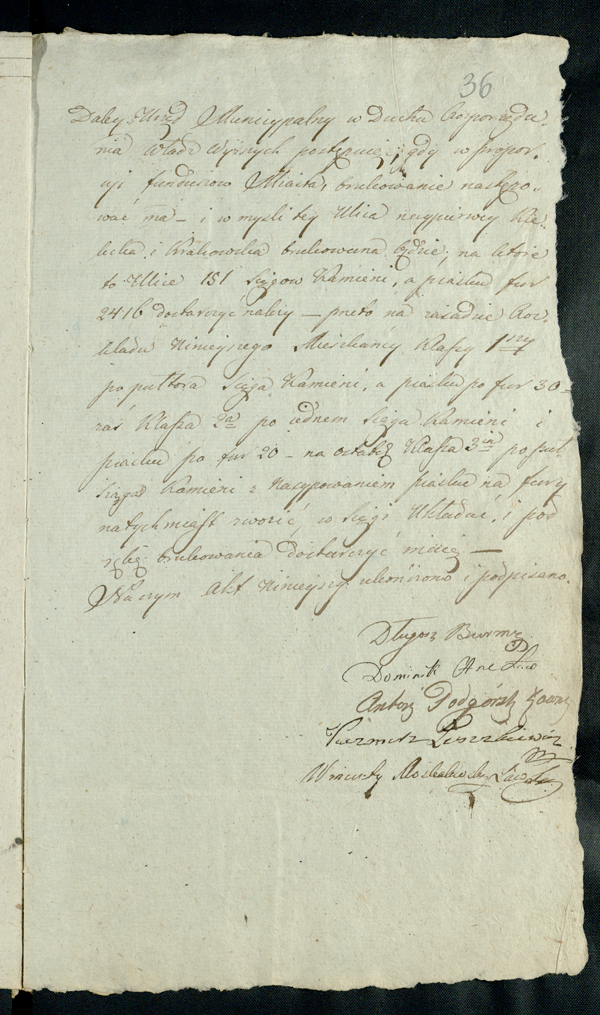 36
Daley Urząd Municypalny w Duchu Rosporządze-
nia Władz Wyższych postępuiąc, gdy w propor-
cyi funduszow Miasta, brukowanie następo-
wać ma – i w myśli tey Ulica naypierwey Kie-
lecka i Krakowska brukowana będzie, na które
to Ulice 151 Sięgow Kamieni, a piasku fur
2416 dostarczyc należy – przeto na zasadzie Roz-
kładu Ninieyszego Mieszkańcy Klassy 1szey
po pułtora Sięga Kamieni, a piasku po fur 30 –
zaś Klassa 2a po iednem Sięga Kamieni i
piasku po fur 20 – na ostatek Klassa 3cia po pul
Sięga Kamieni z Nasypowaniem piasku na fury
natychmiast zwozić, w Sięgi Układać, i pod
brukowania dostarczyć maią –
Na czym Akt Ninieyszy ukończono i podpisano.
Długosz Burmz
Dominik
Antoni Podgórski Ławnik
Kazimierz Leszkiewicz
Wincenty